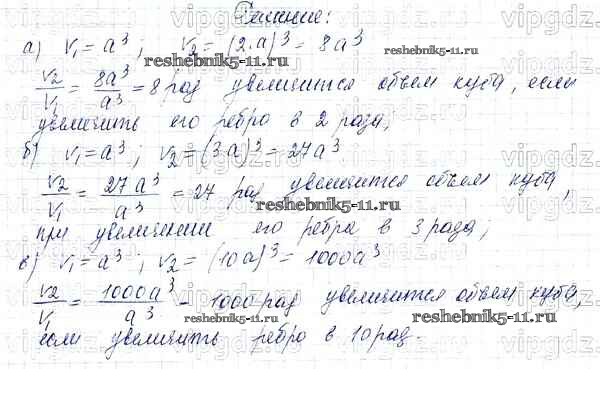 Решение:
а) V₁ = a³ ; V₂ = (2·a)³ = 8a³
V₂/V₁ = 8a³/a³ = 8 раз увеличится объем куба, если
увеличить его ребро в 2 раза;
б) V₁ = a³ ; V₂ = (3a)³ = 27a³
V₂/V₁ = 27a³/a³ = 27 раз увеличится объем куба,
при увеличении его ребра в 3 раза;
в) V₁ = a³ ; V₂ = (10a)³ = 1000a³
V₂/V₁ = 1000a³/a³ = 1000 раз увеличится объем куба,
если увеличить ребро в 10 раз.
reshebnik5-11.ru
reshebnik5-11.ru
reshebnik5-11.ru
reshebnik5-11.ru
reshebnik5-11.ru
vipgdz.